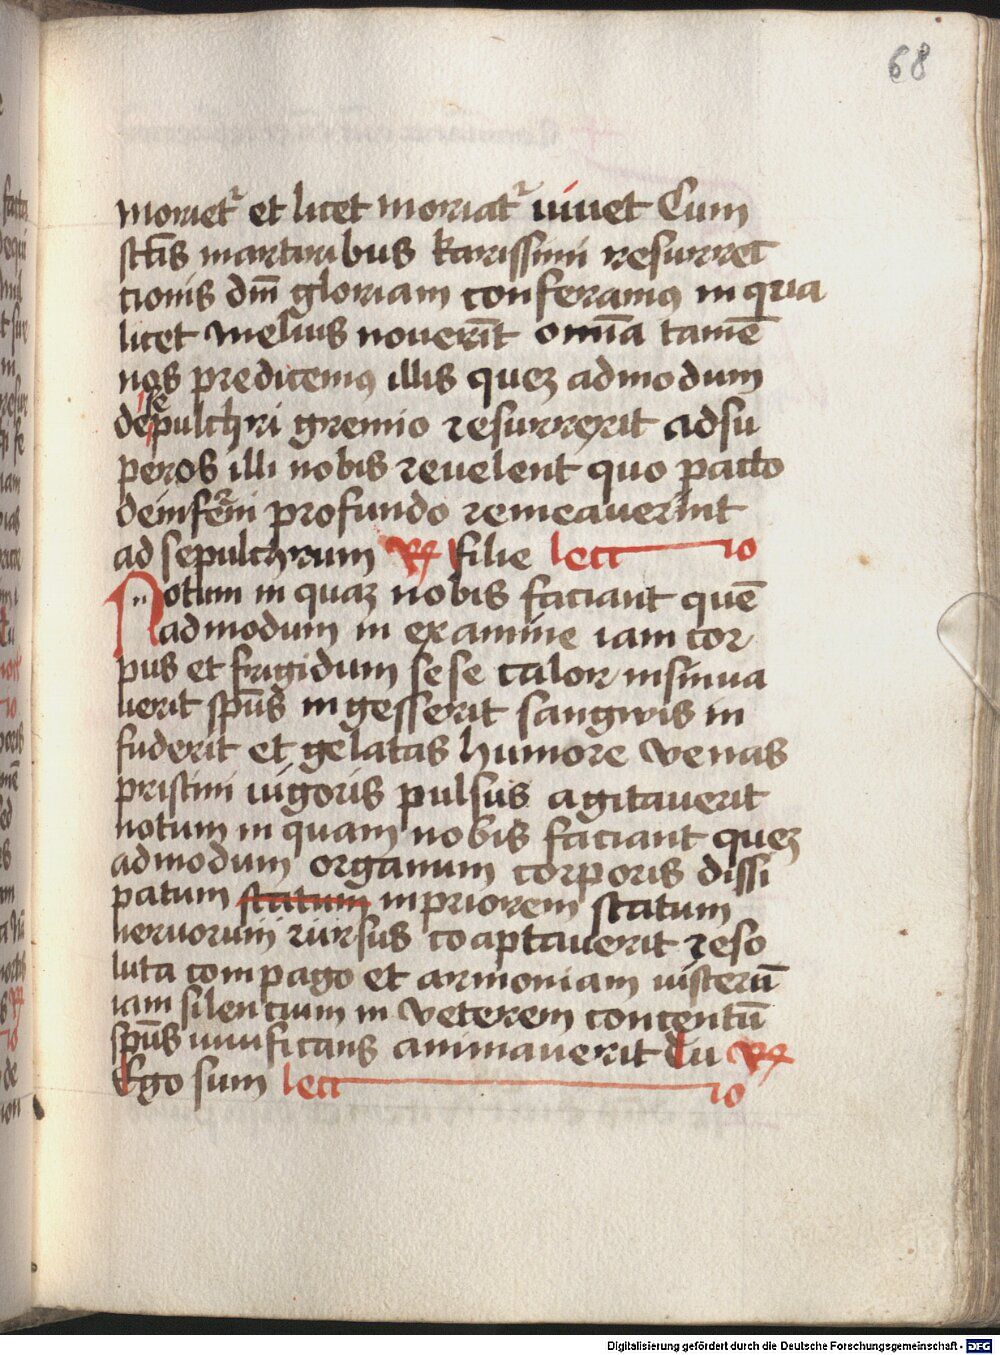 68
morietr et licet moriatr uiuet Cum
sctis martiribus karissimi resurrec
tionis dni gloriam conferamus in qua
licet melius nouerit omnia tamē
nos predicemus illis quez admodum
de se pulchri gremio resurrexit ad su
peros illi nobis reuelent quo pacto
de inferni profundo remeauerint
ad sepulchrum R Filie lectio
Notum in quaz nobis faciant quē
admodum in examine iam cor
pus et frigidum sese calor insinua
uerit spūs in gesserit sangwis in
fuderit et gelatas humore venas
pristini uigoris pulsus agitauerit
notum in quam nobis faciant quez
admodum organum corporis dissi
patum statum in priorem statum
neruorum rursus coaptauerit reso
luta compago et armoniam uiscerū
iam silencium in veterem concentū
spūs uiuificans animauerit Tu R
Ego sum lectio
Digitalisierung gefördert durch die Deutsche Forschungsgemeinschaft - DFG